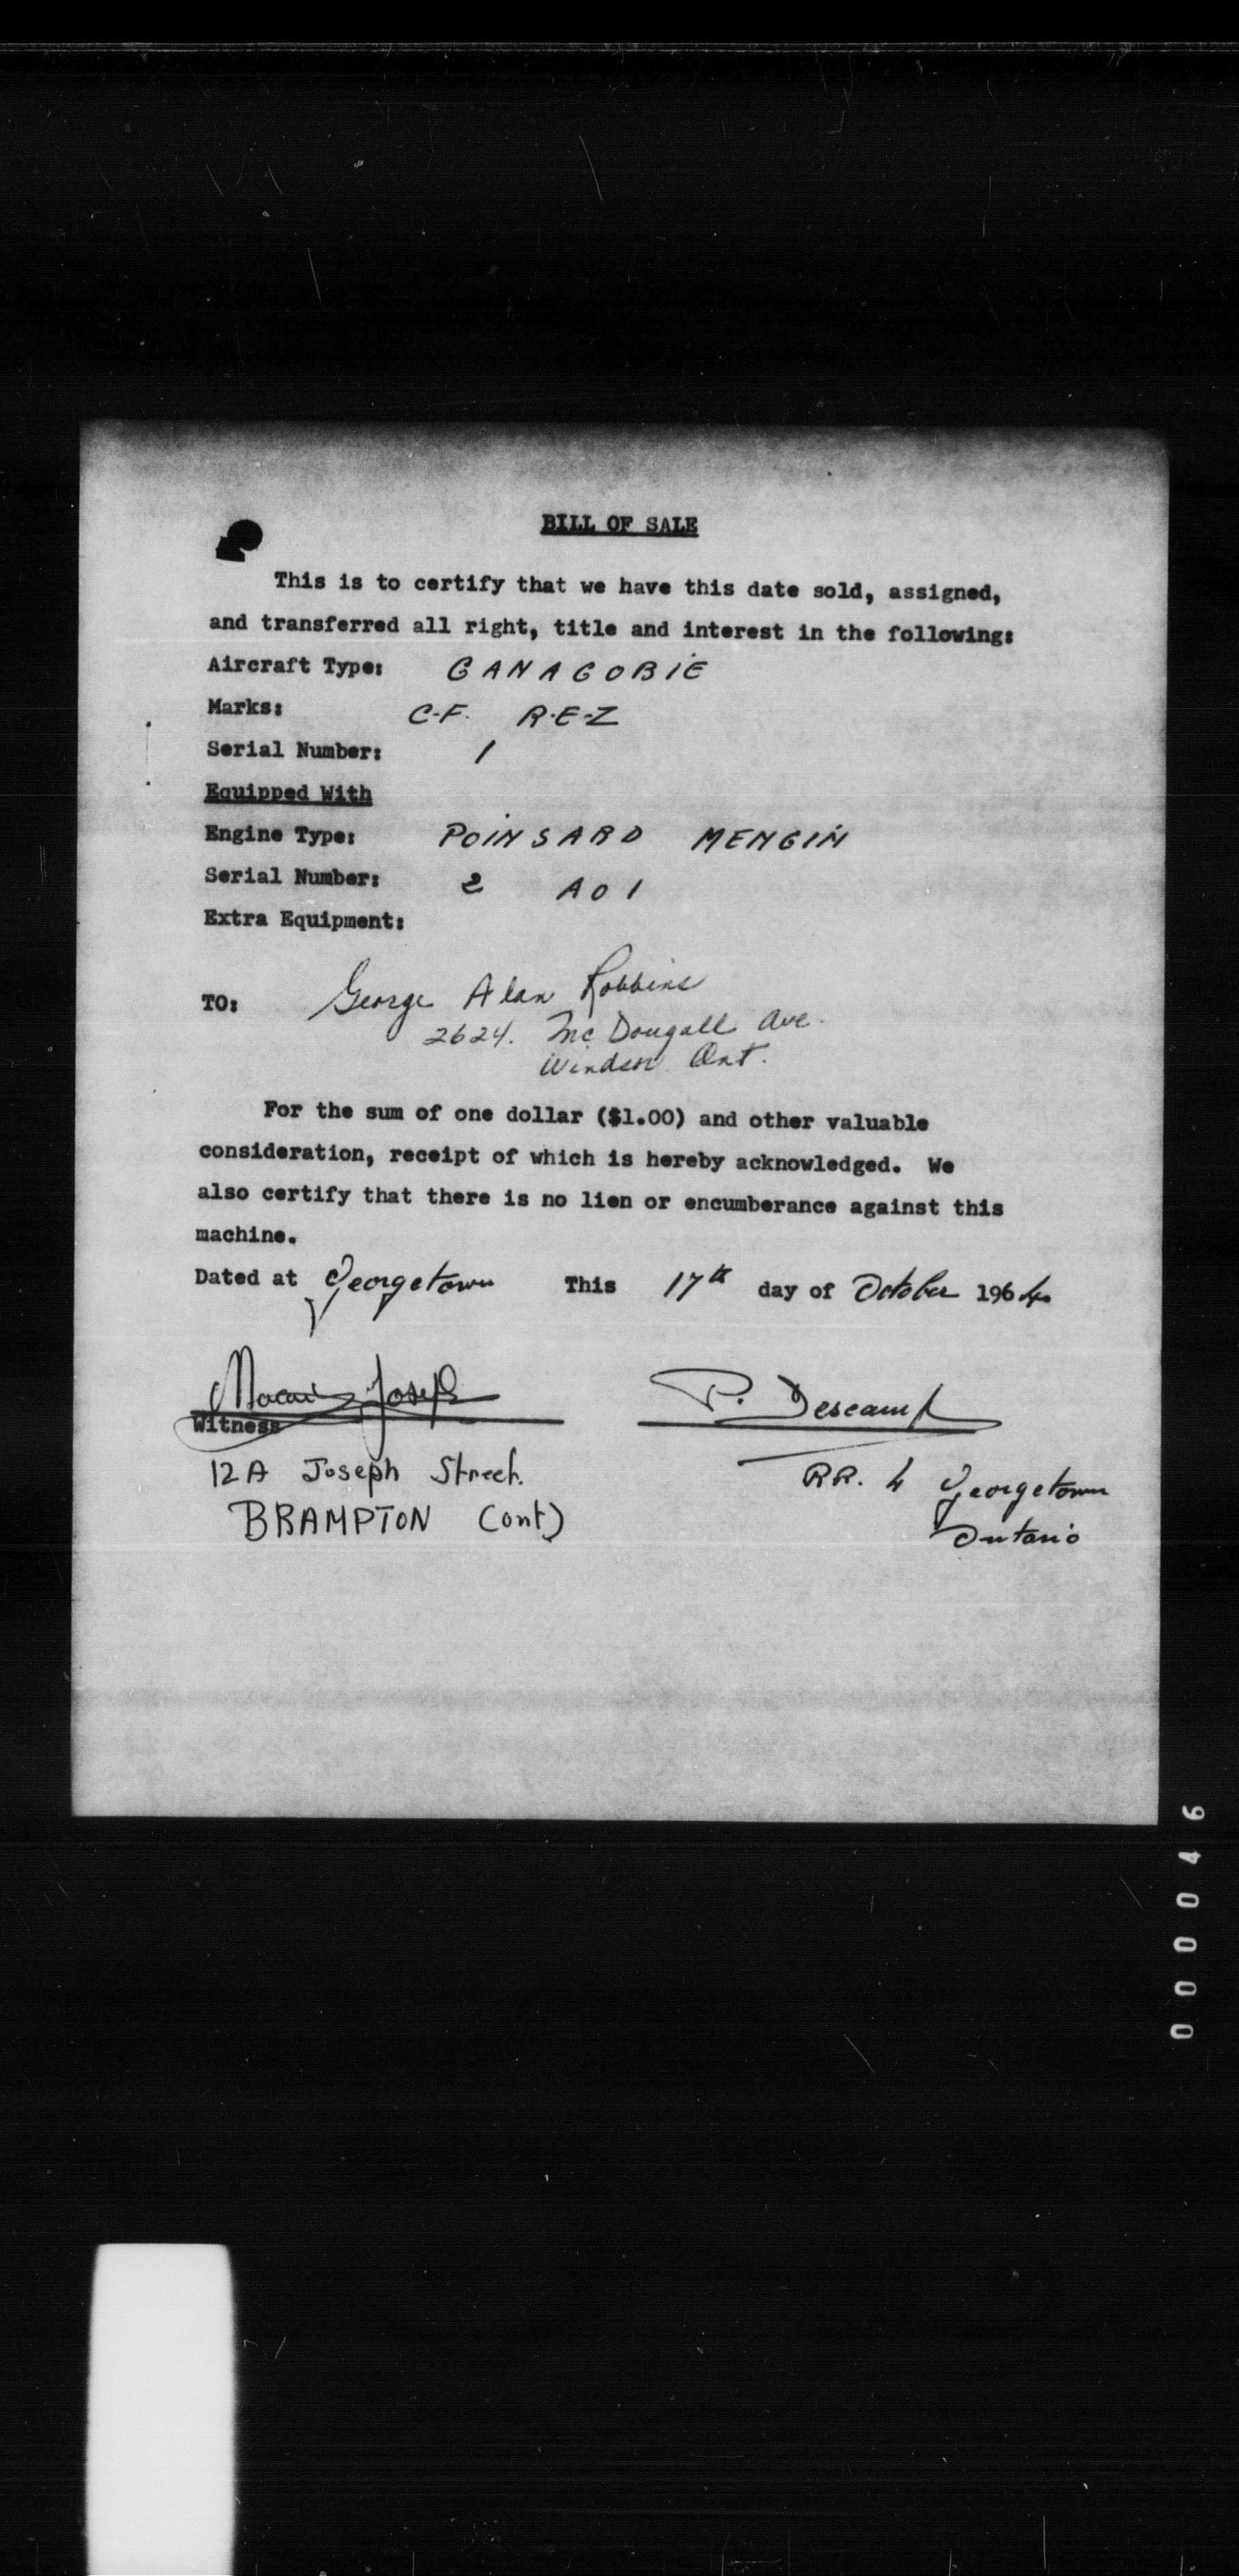 BILL OF SALE
This is to certify that we have this date sold, assigned,
and transferred all right, title and interest in the following:
Aircraft Type: GANAGOBIE
Marks: C-F. R-E-Z
Serial Number: 1
Equipped With
Engine Type: POINSARD MENGIN
Serial Number: 2 A01
Extra Equipment:
TO: George Alan Robbins
2624. McDougall Ave.
Windsor Ont.
For the sum of one dollar ($1.00) and other valuable
consideration, receipt of which is hereby acknowledged. We
also certify that there is no lien or encumberance against this
machine.
Dated at Georgetown This 17th day of October 1964.
Joseph P. Descamp
Witness
12A Joseph Street. RR. 4 Georgetown
BRAMPTON (ont) Ontario
000046